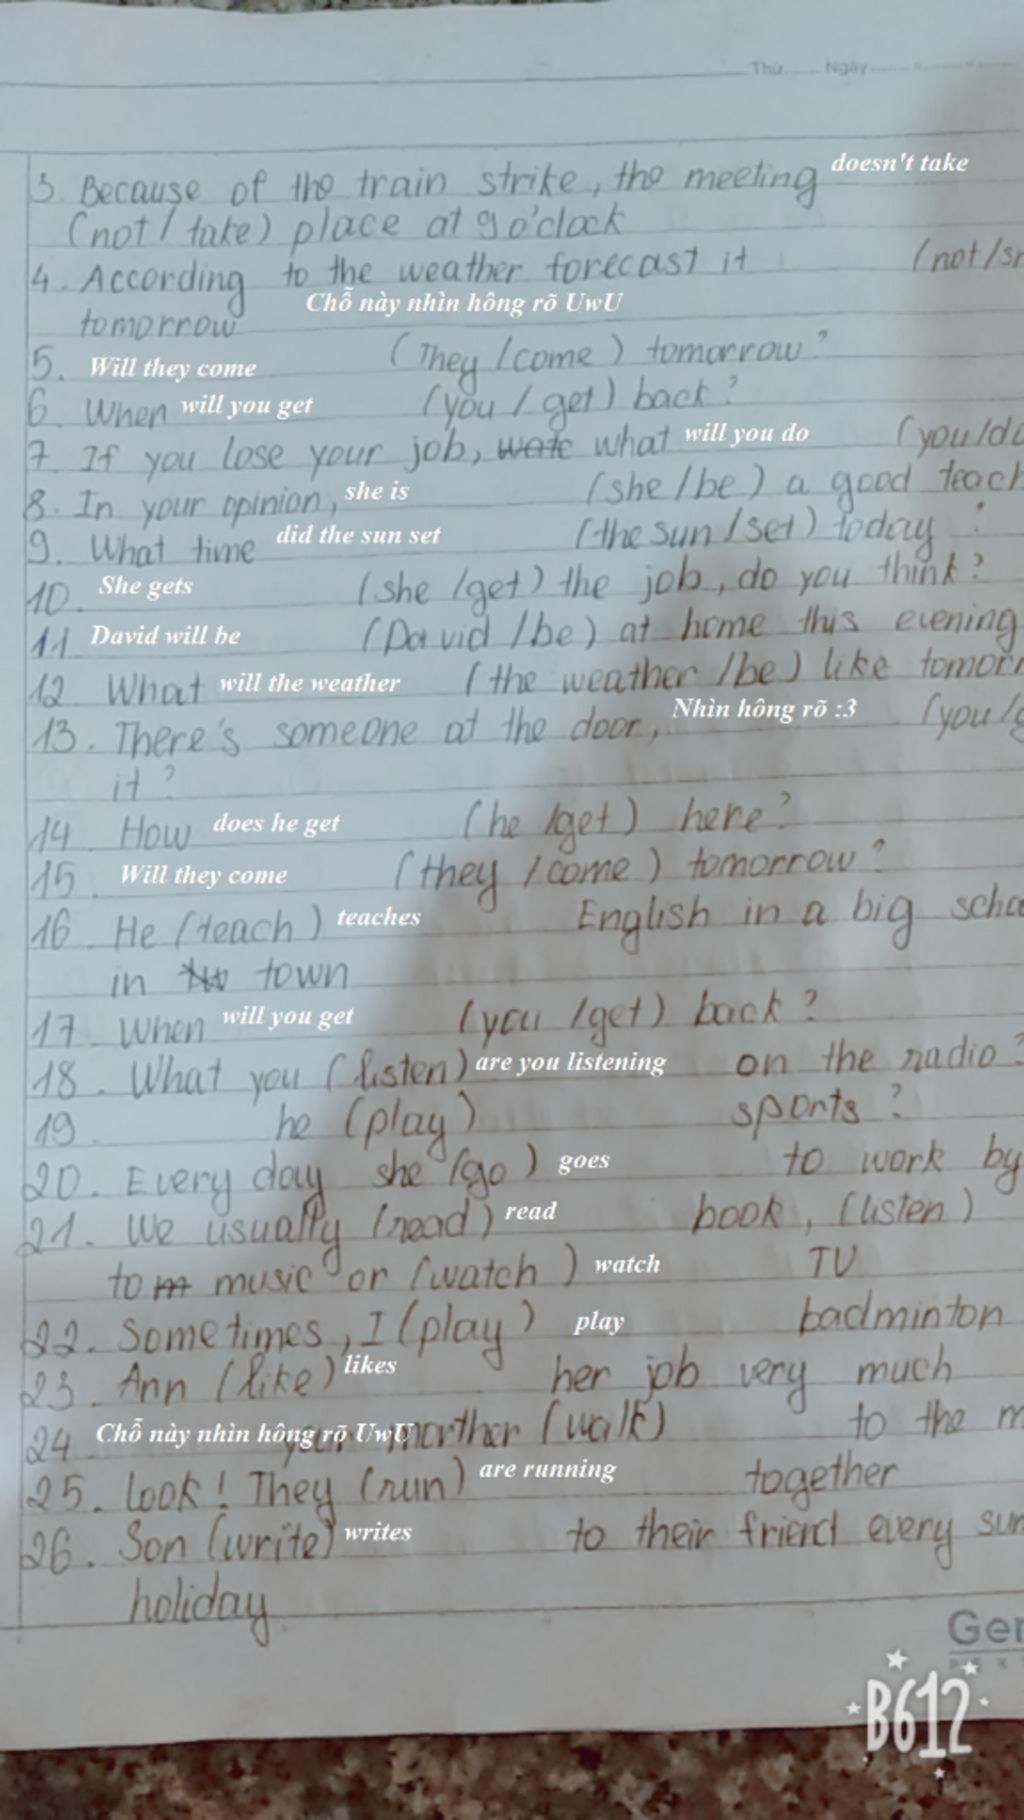 Thứ...... Ngày
3. Because of the train strike, the meeting doesn't take
(not / take) place at 9 o'clock
4. According to the weather forecast it (not/
tomorrow Chỗ này nhìn hông rõ UwU
5. Will they come (They /come) tomorrow?
6. When will you get (you / get) back?
7. If you lose your job, what will you do (you/do
8. In your opinion, she is (she /be) a good
9. What time did the sun set (the sun / set) today ?
10. She gets (she /get) the job, do you think?
11 David will be (David /be) at home this evening
12. What will the weather (the weather /be) like
13. There's someone at the door, Nhìn hông rõ :3 (you/
it ?
14. How does he get (he /get) here?
15. Will they come (they / come) tomorrow?
16. He (teach) teaches English in a big
in town
17. When will you get (you /get) back?
18. What you (listen) are you listening on the radio?
19. he (play) sports ?
20. Every day she (go) goes to work by
21. We usually (read) read book, (listen)
to music or (watch) watch TV
22. Sometimes, I (play) play badminton
23. Ann (like) likes her job very much
24 Chỗ này nhìn hông rõ UwU your morther (walk) to the
25. Look! They (run) are running together
26. Son (write) writes to their friend every
holiday
B612